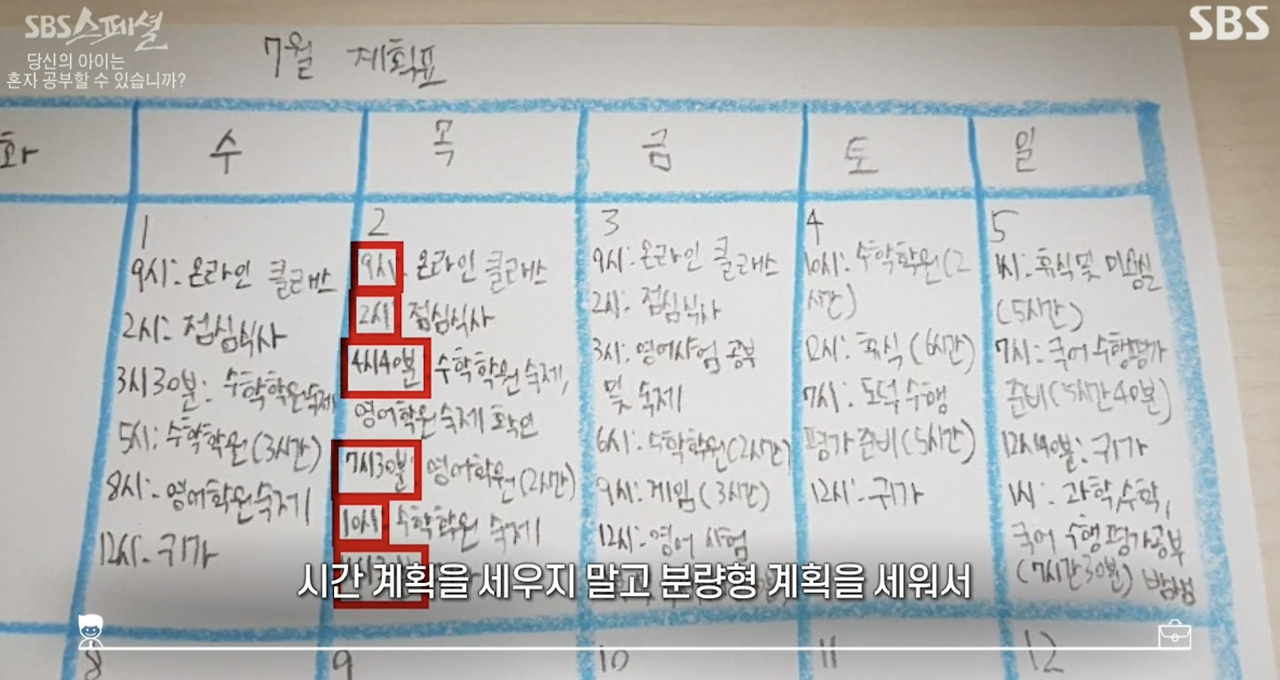 SBS 스페셜
SBS
당신의 아이는
혼자 공부할 수 있습니까?
7월 계획표
화
수
목
금
토
일
1
9시: 온라인 클래스
2시: 점심식사
3시30분: 수학학원숙제
5시: 수학학원(3시간)
8시: 영어학원숙제
12시: 귀가
2
9시: 온라인 클래스
2시 점심식사
4시40분 수학학원숙제,
영어학원숙제 확인
7시30분: 영어학원(2시간)
10시 수학학원 숙제
3
9시: 온라인 클래스
2시: 점심식사
3시: 영어시험 공부
및 숙제
6시: 수학학원(2시간)
9시: 게임(3시간)
12시: 영어 시험
4
10시: 수학학원(2
시간)
12시: 휴식(6시간)
7시: 도덕 수행
평가 준비(5시간)
12시: 귀가
5
1시: 휴식 및 미용실
(5시간)
7시: 국어 수행평가
준비(5시간40분)
12시40분: 귀가
1시: 과학,수학,
국어 수행평가공부
(7시간30분)
시간 계획을 세우지 말고 분량형 계획을 세워서
8
9
10
11
12